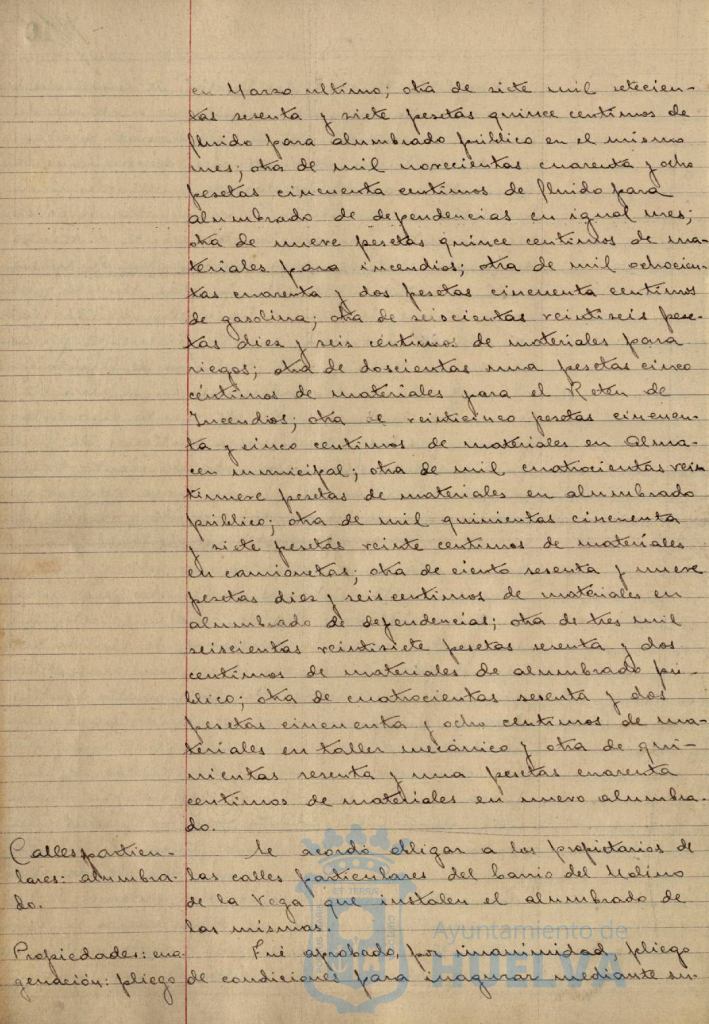 en Marzo ultimo; otra de siete mil setecien-
tas sesenta y siete pesetas quince centimos de
fluido para alumbrado público en el mismo
mes; otra de mil novecientas cuarenta y ocho
pesetas cincuenta centimos de fluido para
alumbrado de dependencias en igual mes;
otra de nueve pesetas quince centimos de ma-
teriales para incendios; otra de mil ochocien-
tas cuarenta y dos pesetas cincuenta centimos
de gasolina; otra de seiscientas veintiseis pese-
tas diez y seis centimos de materiales para
riegos; otra de doscientas una pesetas cinco
céntimos de materiales para el Retén de
Incendios; otra de veinticinco pesetas cincuen-
ta y cinco centimos de materiales en Alma-
cen municipal; otra de mil cuatrocientas vein
tinueve pesetas de materiales en alumbrado
público; otra de mil quinientas cincuenta
y siete pesetas veinte centimos de materiales
en camionetas; otra de ciento sesenta y nueve
pesetas diez y seis centimos de materiales en
alumbrado de dependencias; otra de tres mil
seiscientas veintisiete pesetas sesenta y dos
centimos de materiales de alumbrado pú-
blico; otra de cuatrocientas sesenta y dos
pesetas cincuenta y ocho centimos de ma-
teriales en taller mecánico y otra de qui-
nientas sesenta y una pesetas cuarenta
centimos de materiales en nuevo alumbra-
do.
Calles particu-
lares: alumbra-
do.
Se acordó obligar a los propietarios de
las calles particulares del barrio del Molino
de la Vega que instalen el alumbrado de
las mismas.
Propiedades: ena-
genación: pliego
Fué aprobado, por unanimidad, pliego
de condiciones para inagurar mediante su-
Ayuntamiento de
HUELVA